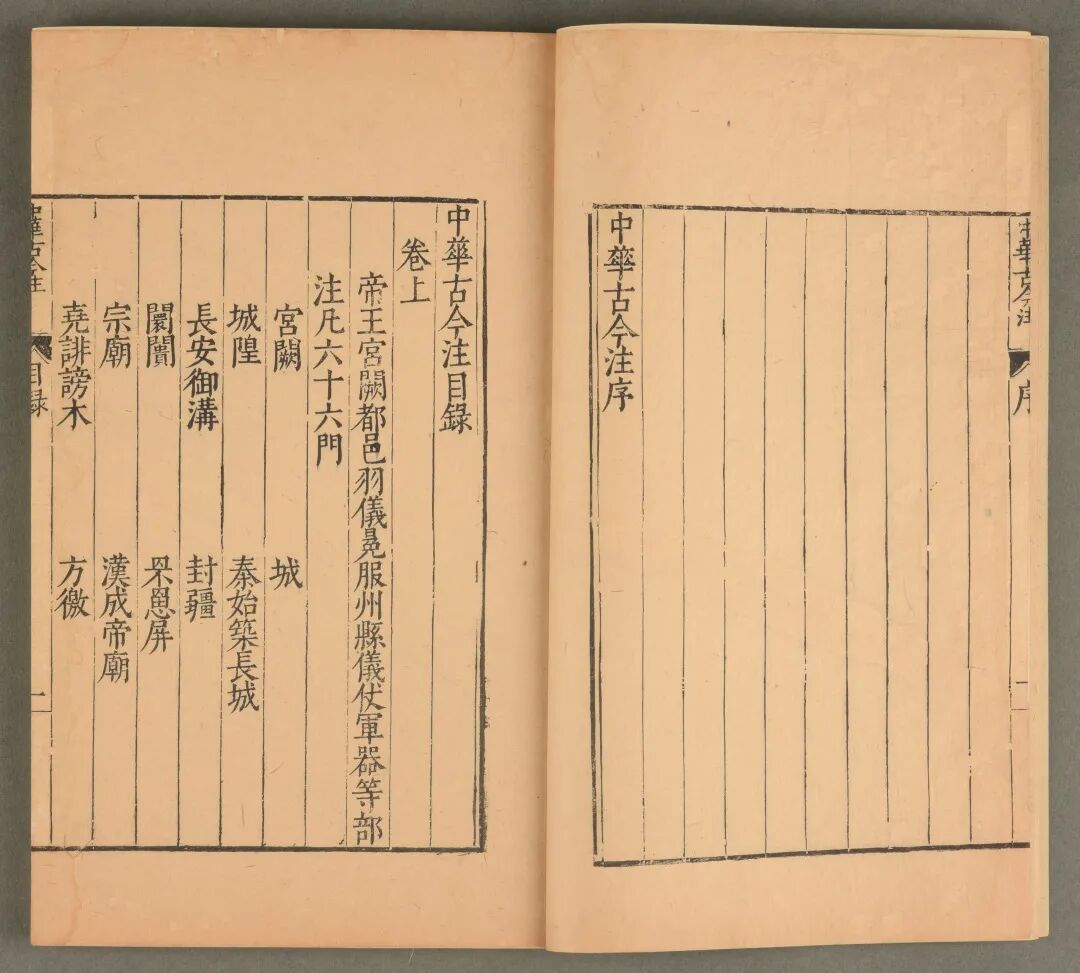 中華古今注
序
中華古今注序
中華古今注目錄
卷上
帝王宮闕都邑羽儀冕服州縣儀仗軍器等部
注凡六十六門
宮闕　城
城隍　秦始築長城
長安御溝　封疆
闤闠　罘罳屏
宗廟　漢成帝廟
堯誹謗木　方徼
中華古今注
目錄
一